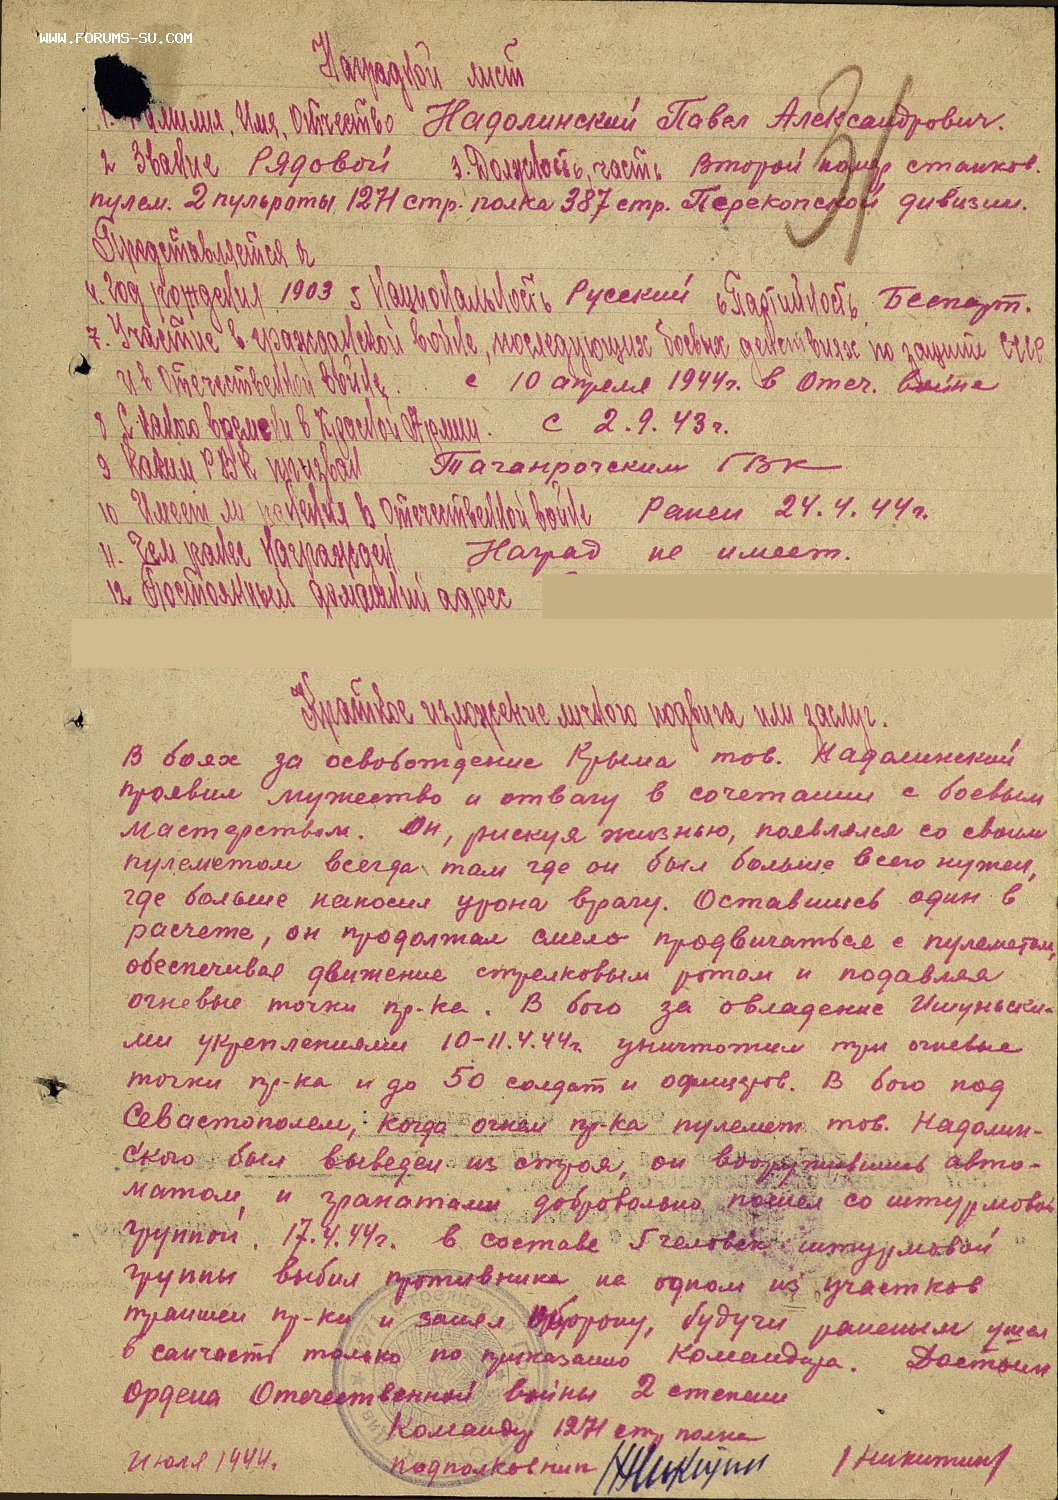 WWW.FORUMS-SU.COM
Наградной лист
31
1. Фамилия, Имя, Отчество Надолинский Павел Александрович.
2 Звание Рядовой 3. Должность, часть Второй номер станков.
пулем. 2 пульроты 1271 стр. полка 387 стр. Перекопской дивизии.
Представляется к
4. Год рождения 1903 5 Национальность Русский 6 Партийность Беспарт.
7. Участие в гражданской войне, последующих боевых действиях по защите СССР
и в Отечественной войне. с 10 апреля 1944г. в Отеч. войне
8 С какого времени в Красной Армии. с 2.9.43г.
9 Каким РВК призван Таганрогским ГВК
10 Имеет ли ранения в Отечественной войне Ранен 24.4.44г.
11. Чем ранее награжден Наград не имеет.
12 Постоянный домашний адрес
Краткое изложение личного подвига или заслуг.
В боях за освобождение Крыма тов. Надолинский
проявил мужество и отвагу в сочетании с боевым
мастерством. Он, рискуя жизнью, появлялся со своим
пулеметом всегда там где он был больше всего нужен,
где больше наносил урона врагу. Оставшись один в
расчете, он продолжал смело продвигаться с пулеметом,
обеспечивая движение стрелковым ротам и подавляя
огневые точки пр-ка. В бою за овладение Ишуньски-
ми укреплениями 10-11.4.44г. уничтожил три огневые
точки пр-ка и до 50 солдат и офицеров. В бою под
Севастополем, когда огнем пр-ка пулемет тов. Надолин-
ского был выведен из строя, он вооружившись авто-
матом, и гранатами добровольно пошел со штурмовой
группой. 17.4.44г. в составе 5 человек штурмовой
группы выбил противника на одном из участков
траншеи пр-ка и занял оборону, будучи раненым ушел
в санчасть только по приказанию командира. Достоин
Ордена Отечественной войны 2 степени
Командир 1271 стр полка
Июля 1944г. подполковник Никитин /Никитин/